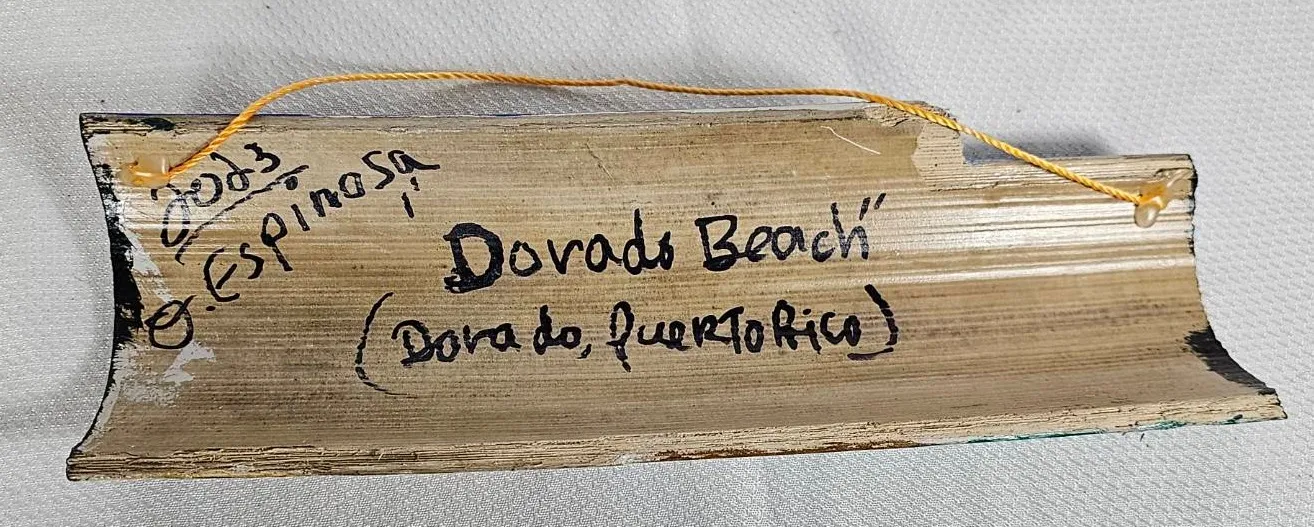 O. Espinosa
Dorado Beach"
(Dorado, Puerto Rico)